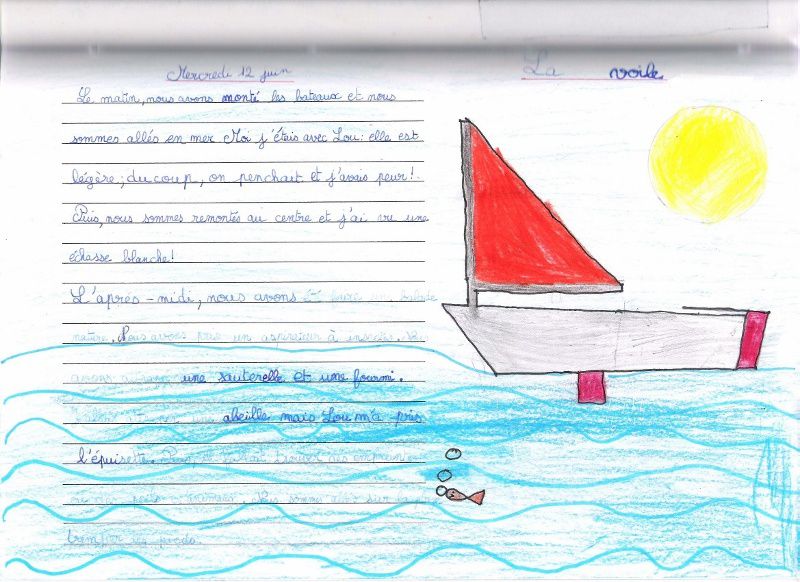 Mercredi 12 juin
La voile
Le matin, nous avons monté les bateaux et nous
sommes allés en mer. Moi j'étais avec Lou: elle est
légère; du coup, on penchait et j'avais peur!
Puis, nous sommes remontés au centre et j'ai vu une
échasse blanche!
L'après-midi, nous avons
nature. Nous avons pris un aspirateur à insectes.
avons une sauterelle et une fourmi.
une abeille mais Lou m'a pris
l'épuisette.
des poils Puis sommes sur la
tremper les pieds.